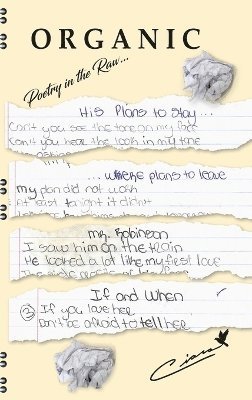 ORGANIC
Poetry in the Raw...
His Plans to Stay...
Can't you see the tone on my face
Can't you hear the look in my tone
...where plans to leave
my plan did not work
At least tonight it didn't
Mr. Robinson
I saw him on the train
He looked a lot like my first love
If and When
② If you love her
Don't be afraid to tell her